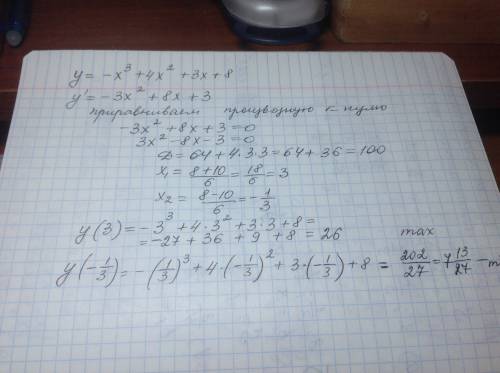 y = -x³ + 4x² + 3x + 8
y' = -3x² + 8x + 3
приравниваем производную к нулю
-3x² + 8x + 3 = 0
3x² - 8x - 3 = 0
D = 64 + 4·3·3 = 64 + 36 = 100
x₁ = (8+10)/6 = 18/6 = 3
x₂ = (8-10)/6 = -1/3
y(3) = -3³ + 4·3² + 3·3 + 8 =
= -27 + 36 + 9 + 8 = 26 max
y(-1/3) = -(1/3)³ + 4·(-1/3)² + 3·(-1/3) + 8 = 202/27 = 7 13/27 - m